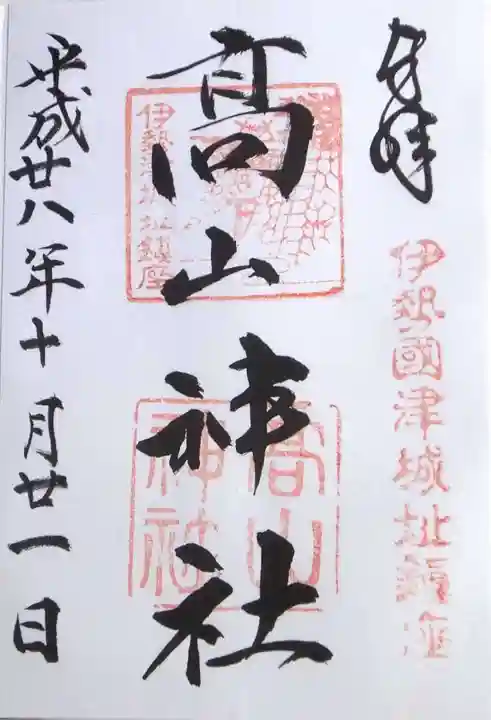 奉拝
伊勢國津城址鎮座
高山神社
伊勢津城址鎮座
高山神社
平成廿八年十月廿一日